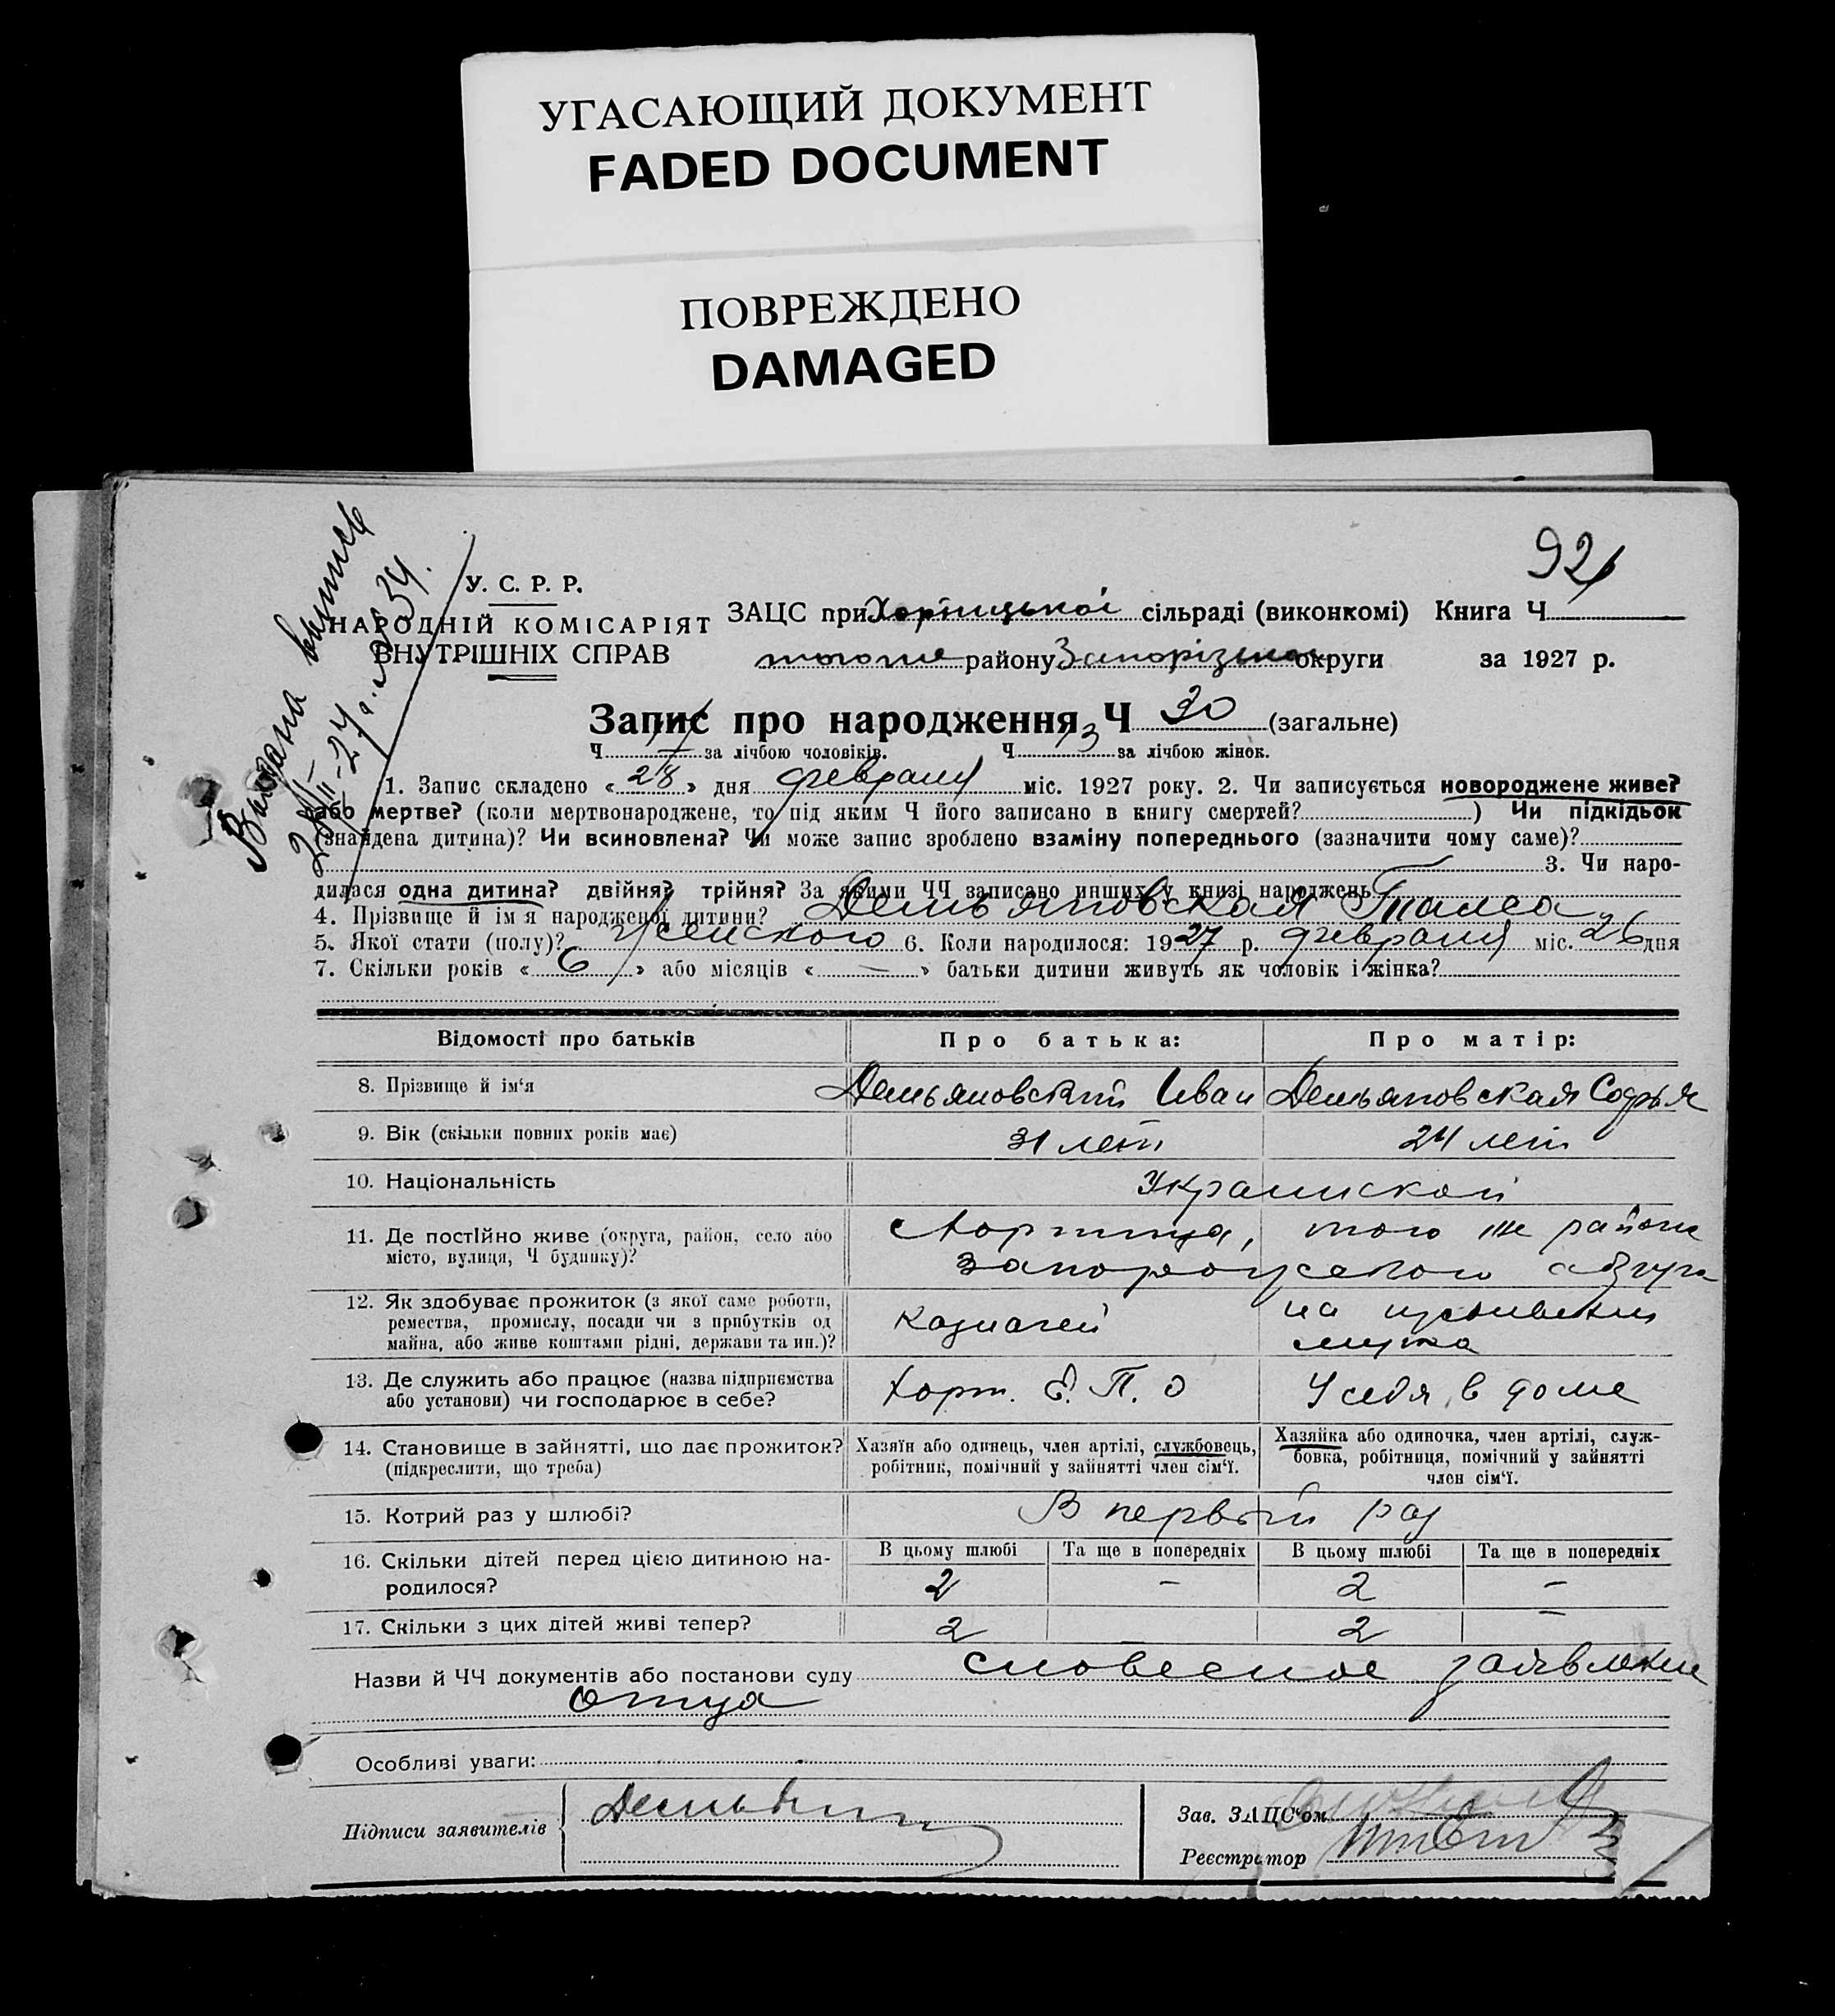 УГАСАЮЩИЙ ДОКУМЕНТ
FADED DOCUMENT
ПОВРЕЖДЕНО
DAMAGED
92
Видана выпись
У. С. Р. Р.
НАРОДНІЙ КОМІСАРІЯТ
ВНУТРІШНІХ СПРАВ
ЗАЦС при Хортицької сільраді (виконкомі) Книга Ч
тогоже району Запорізької округи за 1927 р.
Запис про народження Ч 30 (загальне)
Ч за лічбою чоловіків. Ч 13 за лічбою жінок.
1. Запис складено « 28 » дня февраля міс. 1927 року. 2. Чи записується новороджене живе?
або мертве? (коли мертвонароджене, то під яким Ч його записано в книгу смертей? ) Чи підкідьок
(знайдена дитина)? Чи всиновлена? Чи може запис зроблено взаміну попереднього (зазначити чому саме)?
3. Чи наро-
дилася одна дитина? двійня? трійня? За якими ЧЧ записано инших у книзі народжень
4. Прізвище й ім'я народженої дитини? Демьяновская
5. Якої стати (полу)? Женского 6. Коли народилося: 1927 р. февраля міс. 26 дня
7. Скільки років « 6 » або місяців « — » батьки дитини живуть як чоловік і жінка?
Відомості про батьків Про батька: Про матір:
8. Прізвище й ім‘я Демьяновский Иван Демьяновская Софья
9. Вік (скільки повних років має) 31 лет 24 лет
10. Національність Украинской
11. Де постійно живе (округа, район, село або Хортица, того же района
місто, вулиця, Ч будинку)? Запорожского округа
12. Як здобуває прожиток (з якої саме роботи, казначей на иждивении
ремества, промислу, посади чи з прибутків од мужа
майна, або живе коштами рідні, держави та ин.)?
13. Де служить або працює (назва підприємства Хорт. Е. П. О У себя в доме
або установи) чи господарює в себе?
14. Становище в зайнятті, що дає прожиток? Хазяїн або одинець, член артілі, службовець, Хазяйка або одиночка, член артілі, служ-
(підкреслити, що треба) робітник, помічний у зайнятті член сім‘ї. бовка, робітниця, помічний у зайнятті
член сім‘ї.
15. Котрий раз у шлюбі? В первый раз
16. Скільки дітей перед цією дитиною на- В цьому шлюбі Та ще в попередніх В цьому шлюбі Та ще в попередніх
родилося? 2 — 2 —
17. Скільки з цих дітей живі тепер? 2 — 2 —
Назви й ЧЧ документів або постанови суду словесное заявление
отца
Особливі уваги:
Підписи заявителів
Зав. ЗАЦС‘ом
Реєстратор